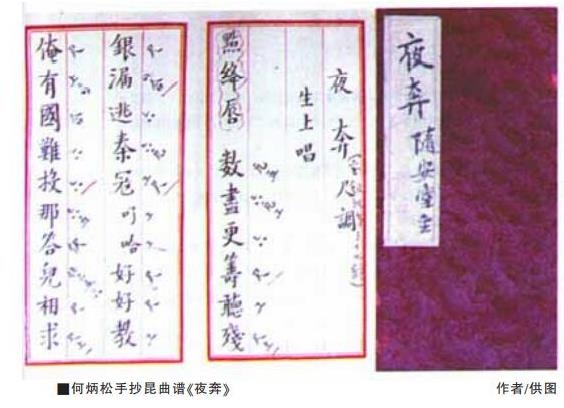 夜奔 隨安室主
夜奔
生上唱
點絳唇 數盡更籌聽殘
銀漏逃秦寇吁哈好好教
俺有國難投那答兒相求
■何炳松手抄昆曲谱《夜奔》
作者/供图